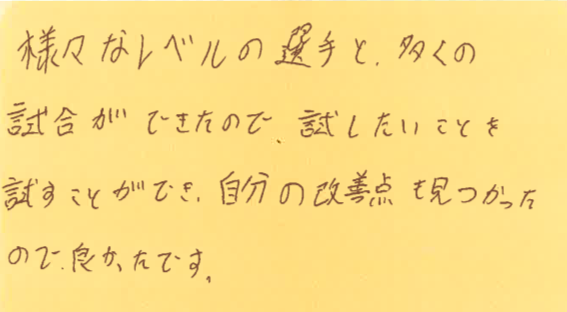 様々なレベルの選手と、多くの
試合ができたので、試したいことを
試すことができ、自分の改善点も見つかった
ので、良かったです。